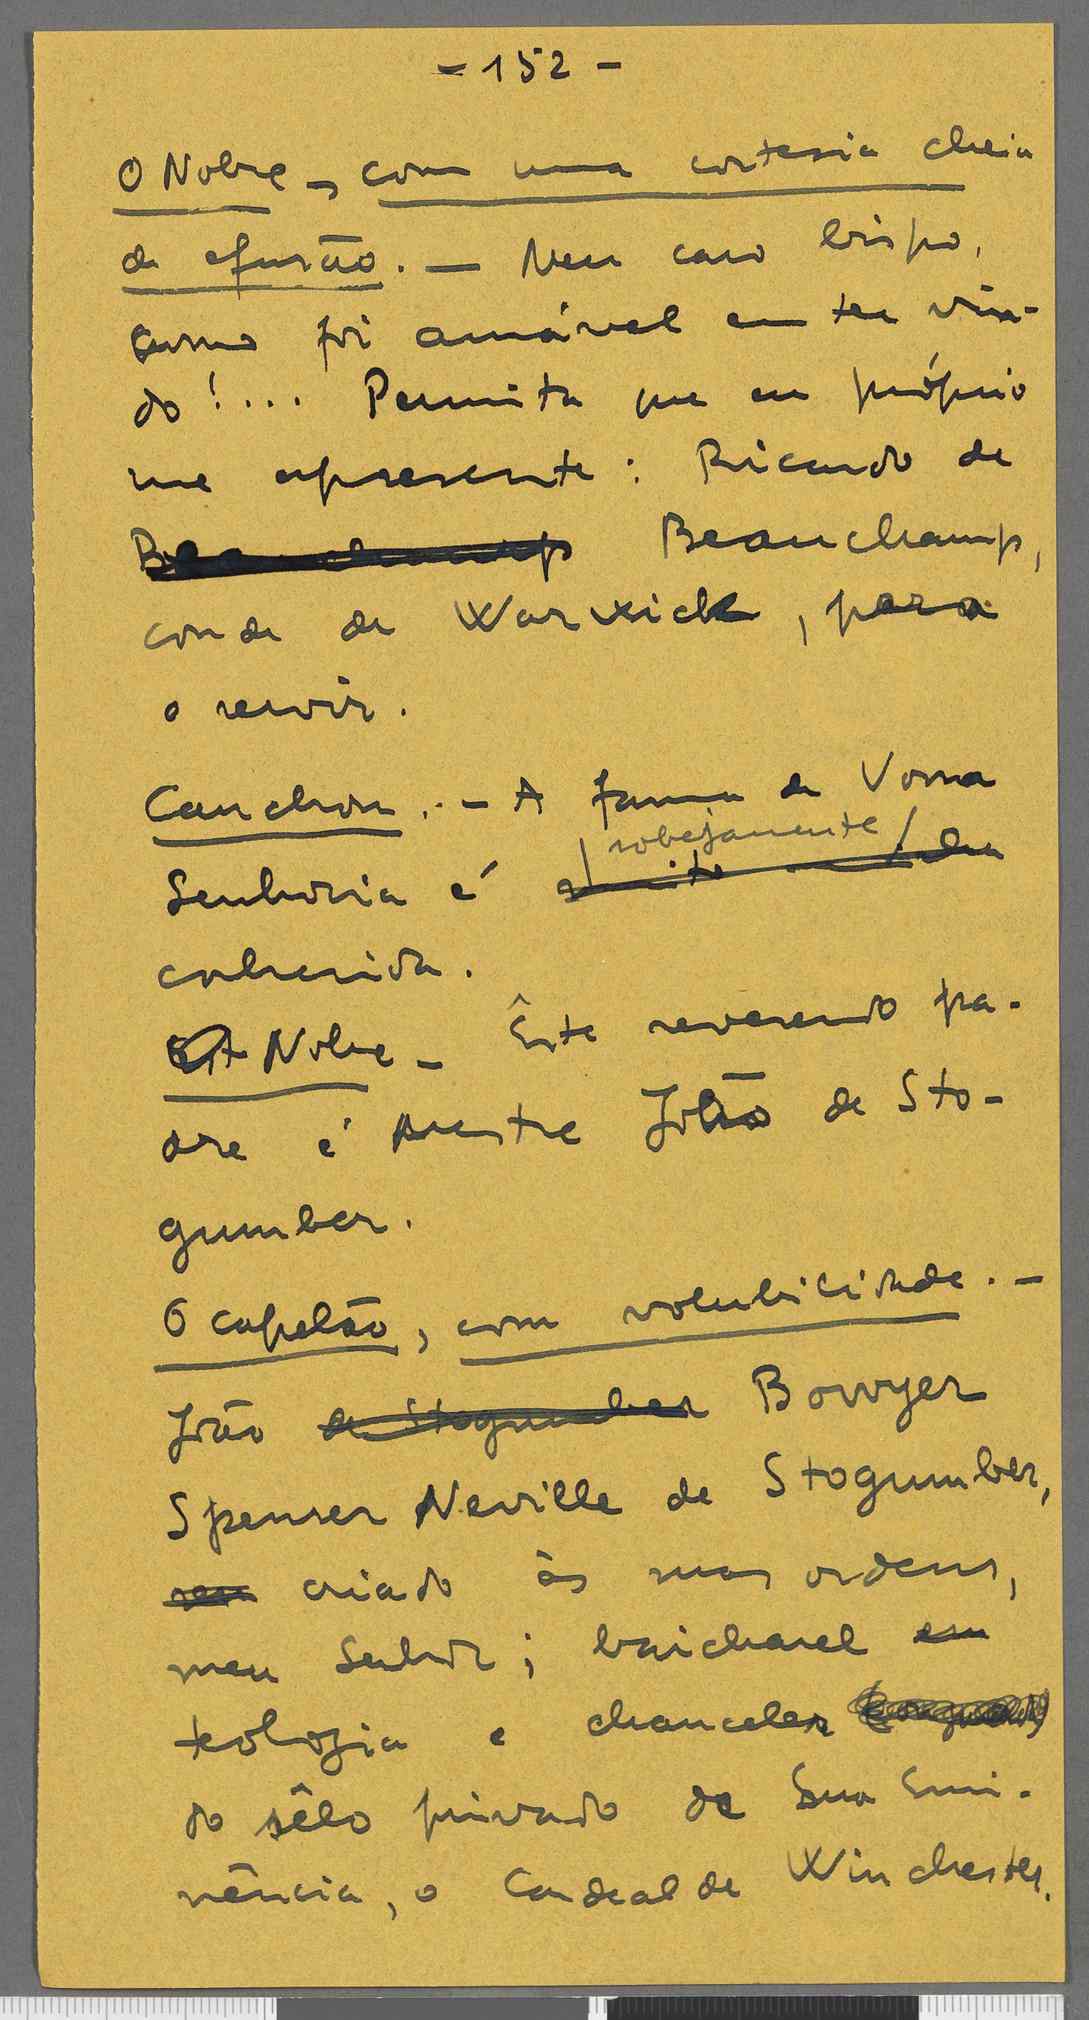 - 152 -
O Nobre -, com uma cortesia cheia
de efusão. — Meu caro bispo,
como foi amável em ter vin-
do!... Permita que eu próprio
me apresente: Ricardo de
Beauchamp Beauchamp,
conde de Warwick, para
o servir.
Cauchon. - A fama de Vossa
sobejamente
Senhoria é
conhecida.
Nobre - Êste reverendo pa-
dre é Mestre João de Sto-
gumber.
O capelão, com volubilidade. -
João de Stogumber Bowyer
Spenser Neville de Stogumber,
seu criado às suas ordens,
meu Senhor; baicharel em
teologia e chanceler
do sêlo privado de Sua Emi-
nência, o Cardeal de Winchester.